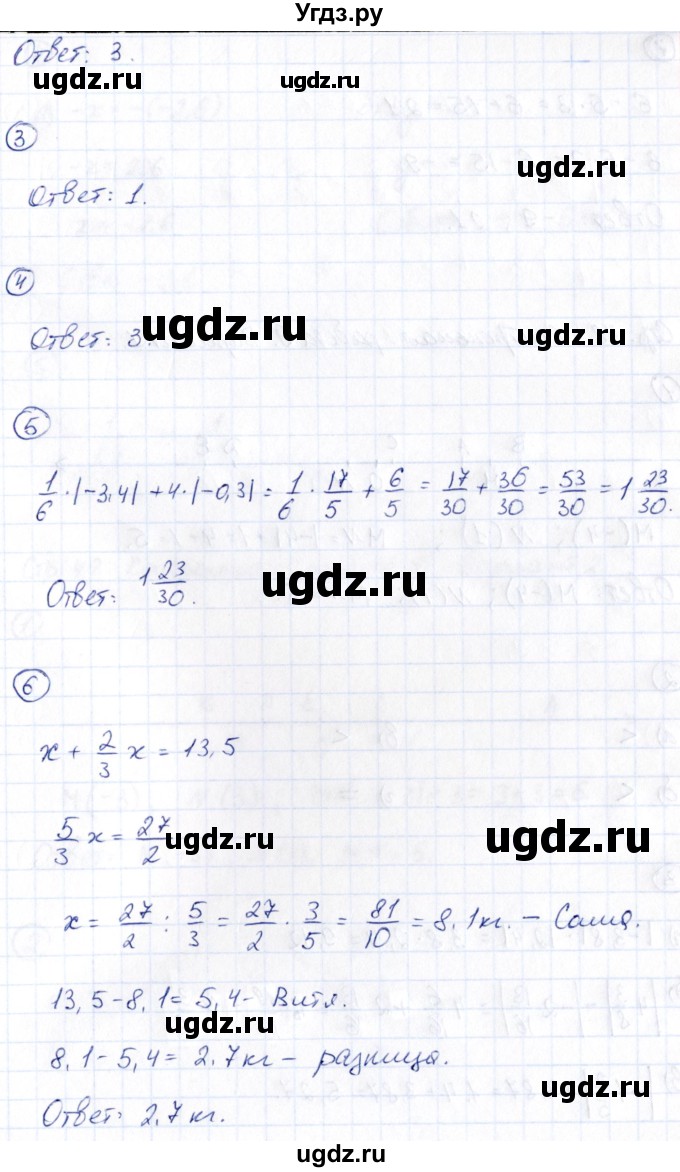 Угдз.ру
Ответ: 3.
ugdz.ru ugdz.ru
3
ugdz.ru
Ответ: 1.
4
Ответ: 3.
ugdz.ru ugdz.ru
5
1/6 · |-3,4| + 4 · |-0,3| = 1/6 · 17/5 + 6/5 = 17/30 + 36/30 = 53/30 = 1 23/30.
Ответ: 1 23/30.
ugdz.ru
6
x + 2/3 x = 13,5
5/3 x = 27/2
ugdz.ru ugdz.ru
x = 27/2 : 5/3 = 27/2 · 3/5 = 81/10 = 8,1кг. - Саша.
13,5-8,1= 5,4- Витя.
ugdz.ru
8,1-5,4= 2,7кг - разница.
ugdz.ru
Ответ: 2,7кг.
ugdz.ru ugdz.ru